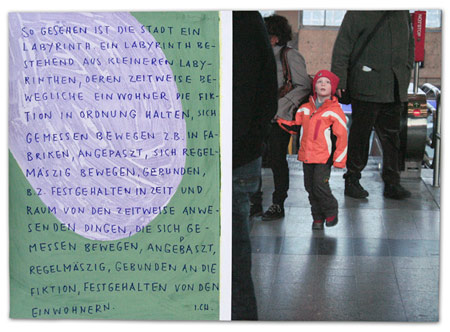 SO GESEHEN IST DIE STADT EIN
LABYRINTH. EIN LABYRINTH BE-
STEHEND AUS KLEINEREN LABY-
RINTHEN, DEREN ZEITWEISE BE-
WEGLICHE EINWOHNER DIE FIK-
TION IN ORDNUNG HALTEN, SICH
GEMESSEN BEWEGEN Z.B. IN FA-
BRIKEN, ANGEPASZT, SICH REGEL-
MÄSZIG BEWEGEN, GEBUNDEN,
B.Z. FESTGEHALTEN IN ZEIT UND
RAUM VON DEN ZEITWEISE ANWE-
SENDEN DINGEN, DIE SICH GE-
MESSEN BEWEGEN, ANGEPASZT,
REGELMÄSZIG, GEBUNDEN AN DIE
FIKTION, FESTGEHALTEN VON DEN
EINWOHNERN. I.CH.